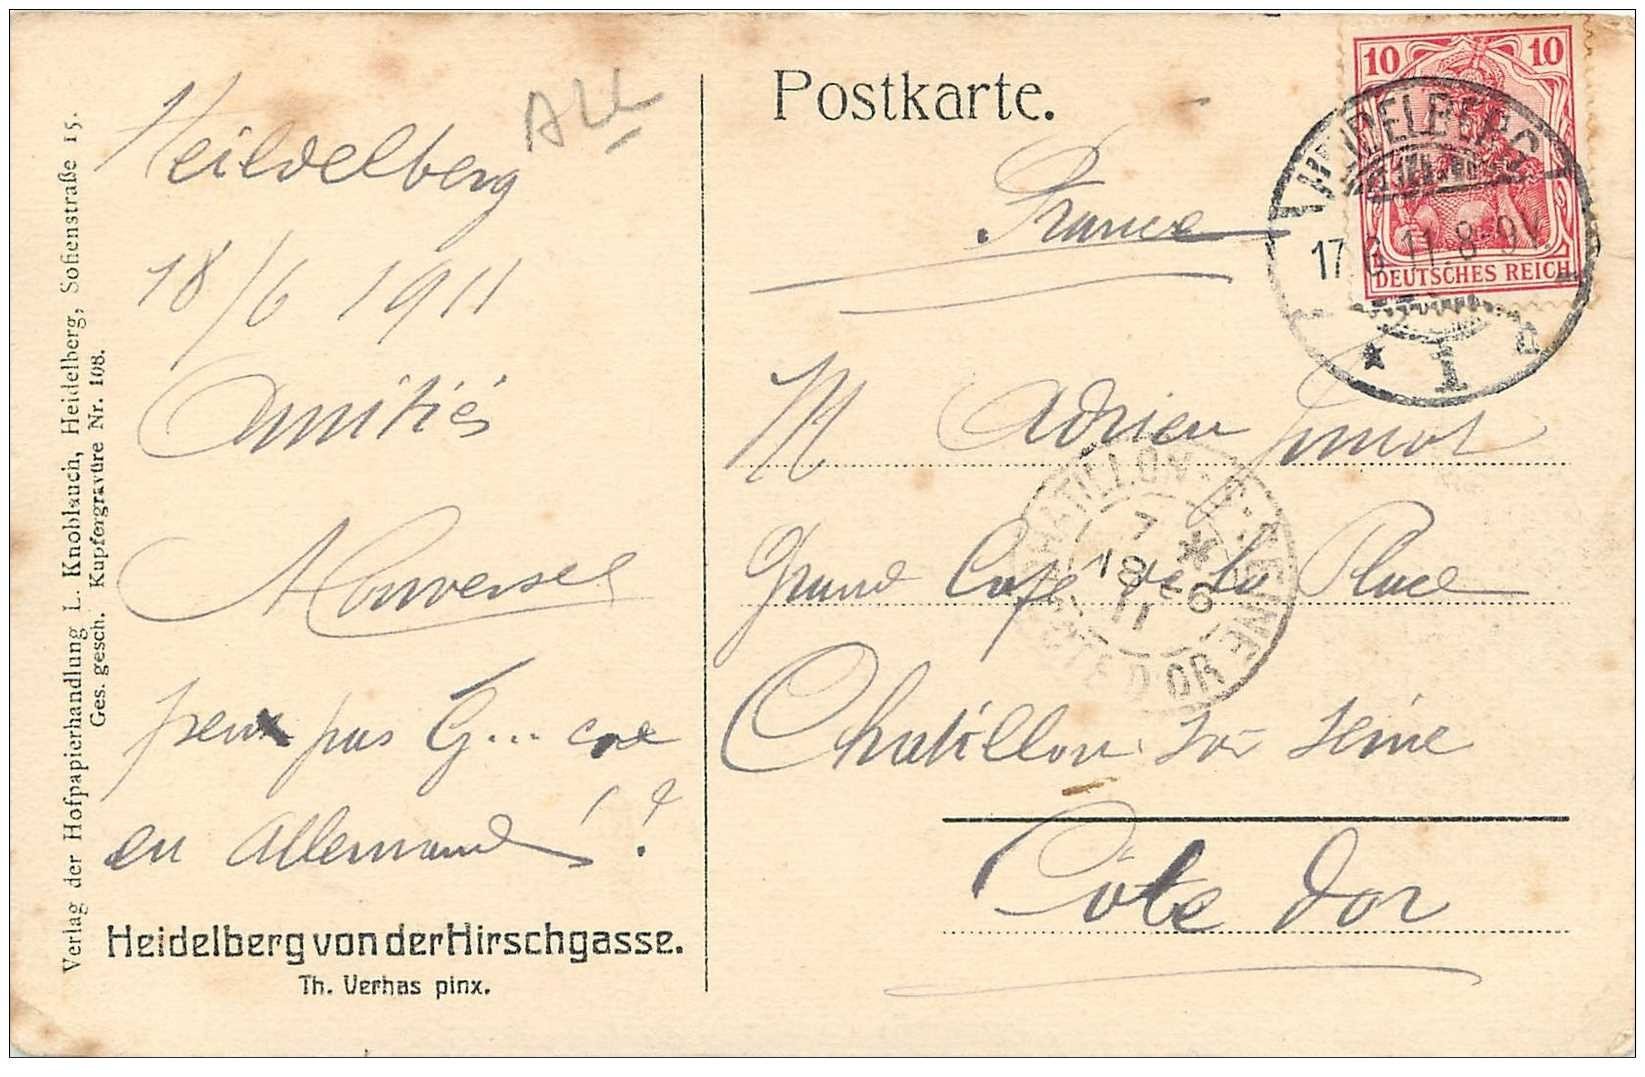 Verlag der Hofpapierhandlung L. Knoblauch, Heidelberg, Sofienstraße 15.
Ges. gesch. Kupfergravüre Nr. 108.
ALL
Heildelberg
18/6 1911
Amitiés
peux pas G...
en Allemand !!
Heidelberg von der Hirschgasse.
Th. Verhas pinx.
Postkarte.
France
10 10
DEUTSCHES REICH
HEIDELBERG
17.6.11.8-9V.
* 1
M Adrien
Grand Café de la Place
Chatillon sur Seine
Côte dor
CHATILLON-S-SEINE
7 *
18 -6
11
COTE D'OR